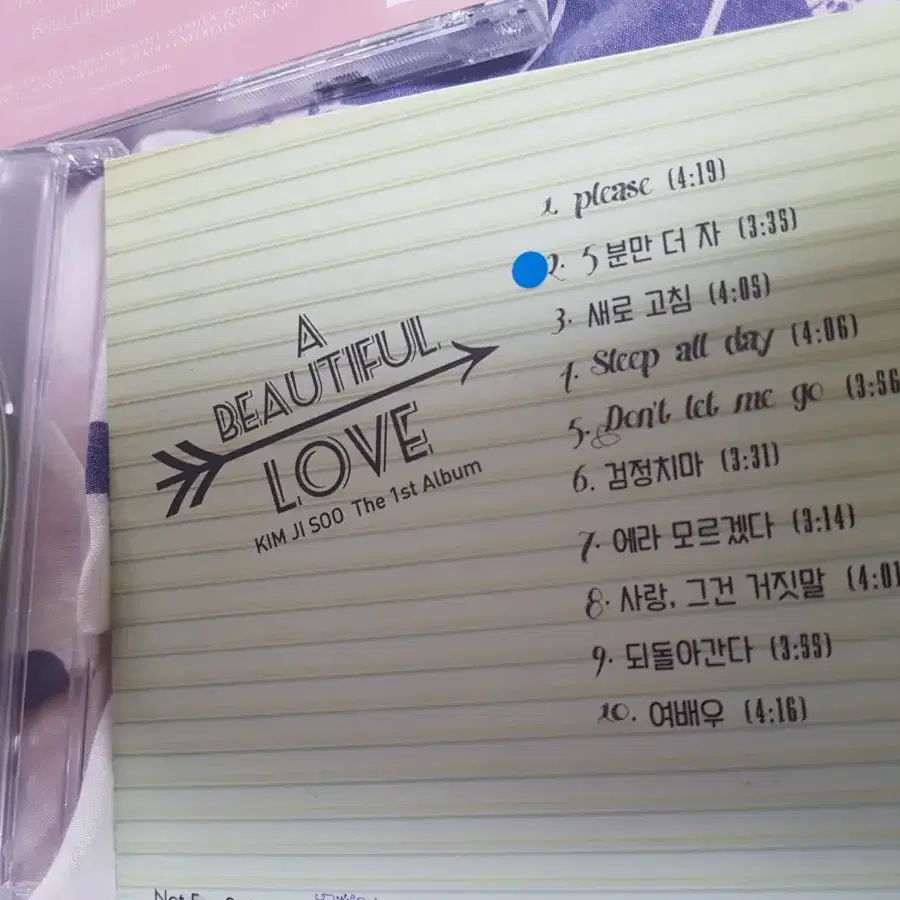 A
BEAUTIFUL
LOVE
KIM JI SOO The 1st Album
1. please (4:19)
2. 5분만 더 자 (3:35)
3. 새로 고침 (4:05)
4. Sleep all day (4:06)
5. Don't let me go (3:56
6. 검정치마 (3:31)
7. 에라 모르겠다 (3:14)
8. 사랑, 그건 거짓말 (4:01
9. 되돌아간다 (3:55)
10. 여배우 (4:16)